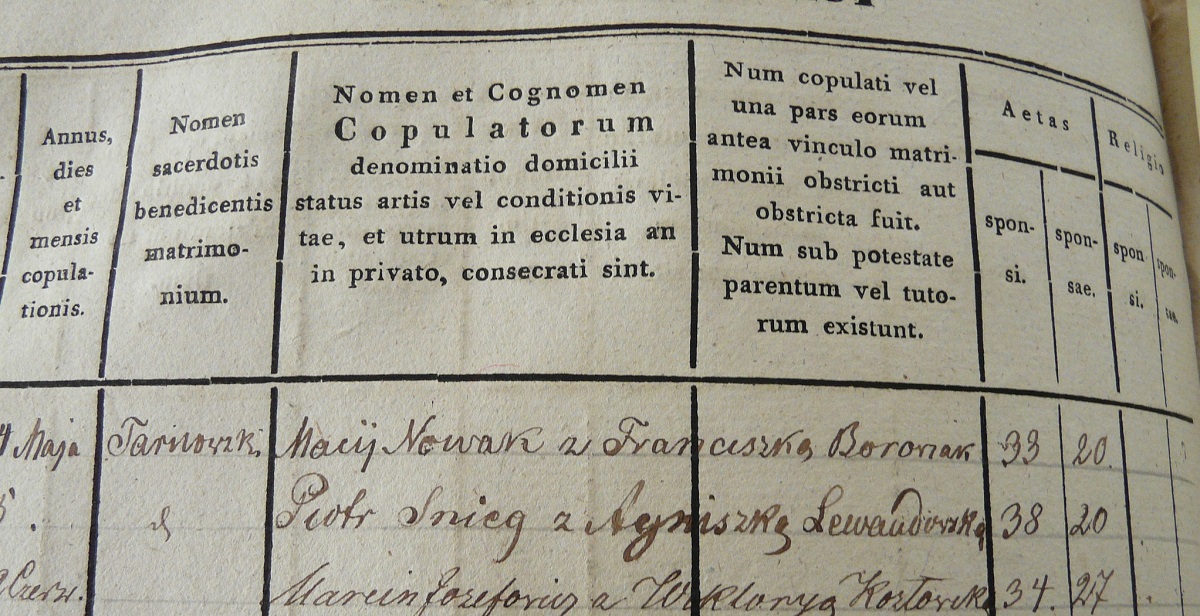 Annus,
dies
et
mensis
copula-
tionis.
Nomen
sacerdotis
benedicentis
matrimo-
nium.
Nomen et Cognomen
Copulatorum
denominatio domicilii
status artis vel conditionis vi-
tae, et utrum in ecclesia an
in privato, consecrati sint.
Num copulati vel
una pars eorum
antea vinculo matri-
monii obstricti aut
obstricta fuit.
Num sub potestate
parentum vel tuto-
rum existunt.
Aetas
spon-
si.
spon-
sae.
Religio
spon-
si.
spon-
sae.
4 Maja Tarnowski Macij Nowak z Franciszką Boroniak 33 20.
Piotr Snieg z Agniszką Lewandovską 38 20
Czerw. Marcin Jozefovicz z Wiktoryą 34. 27